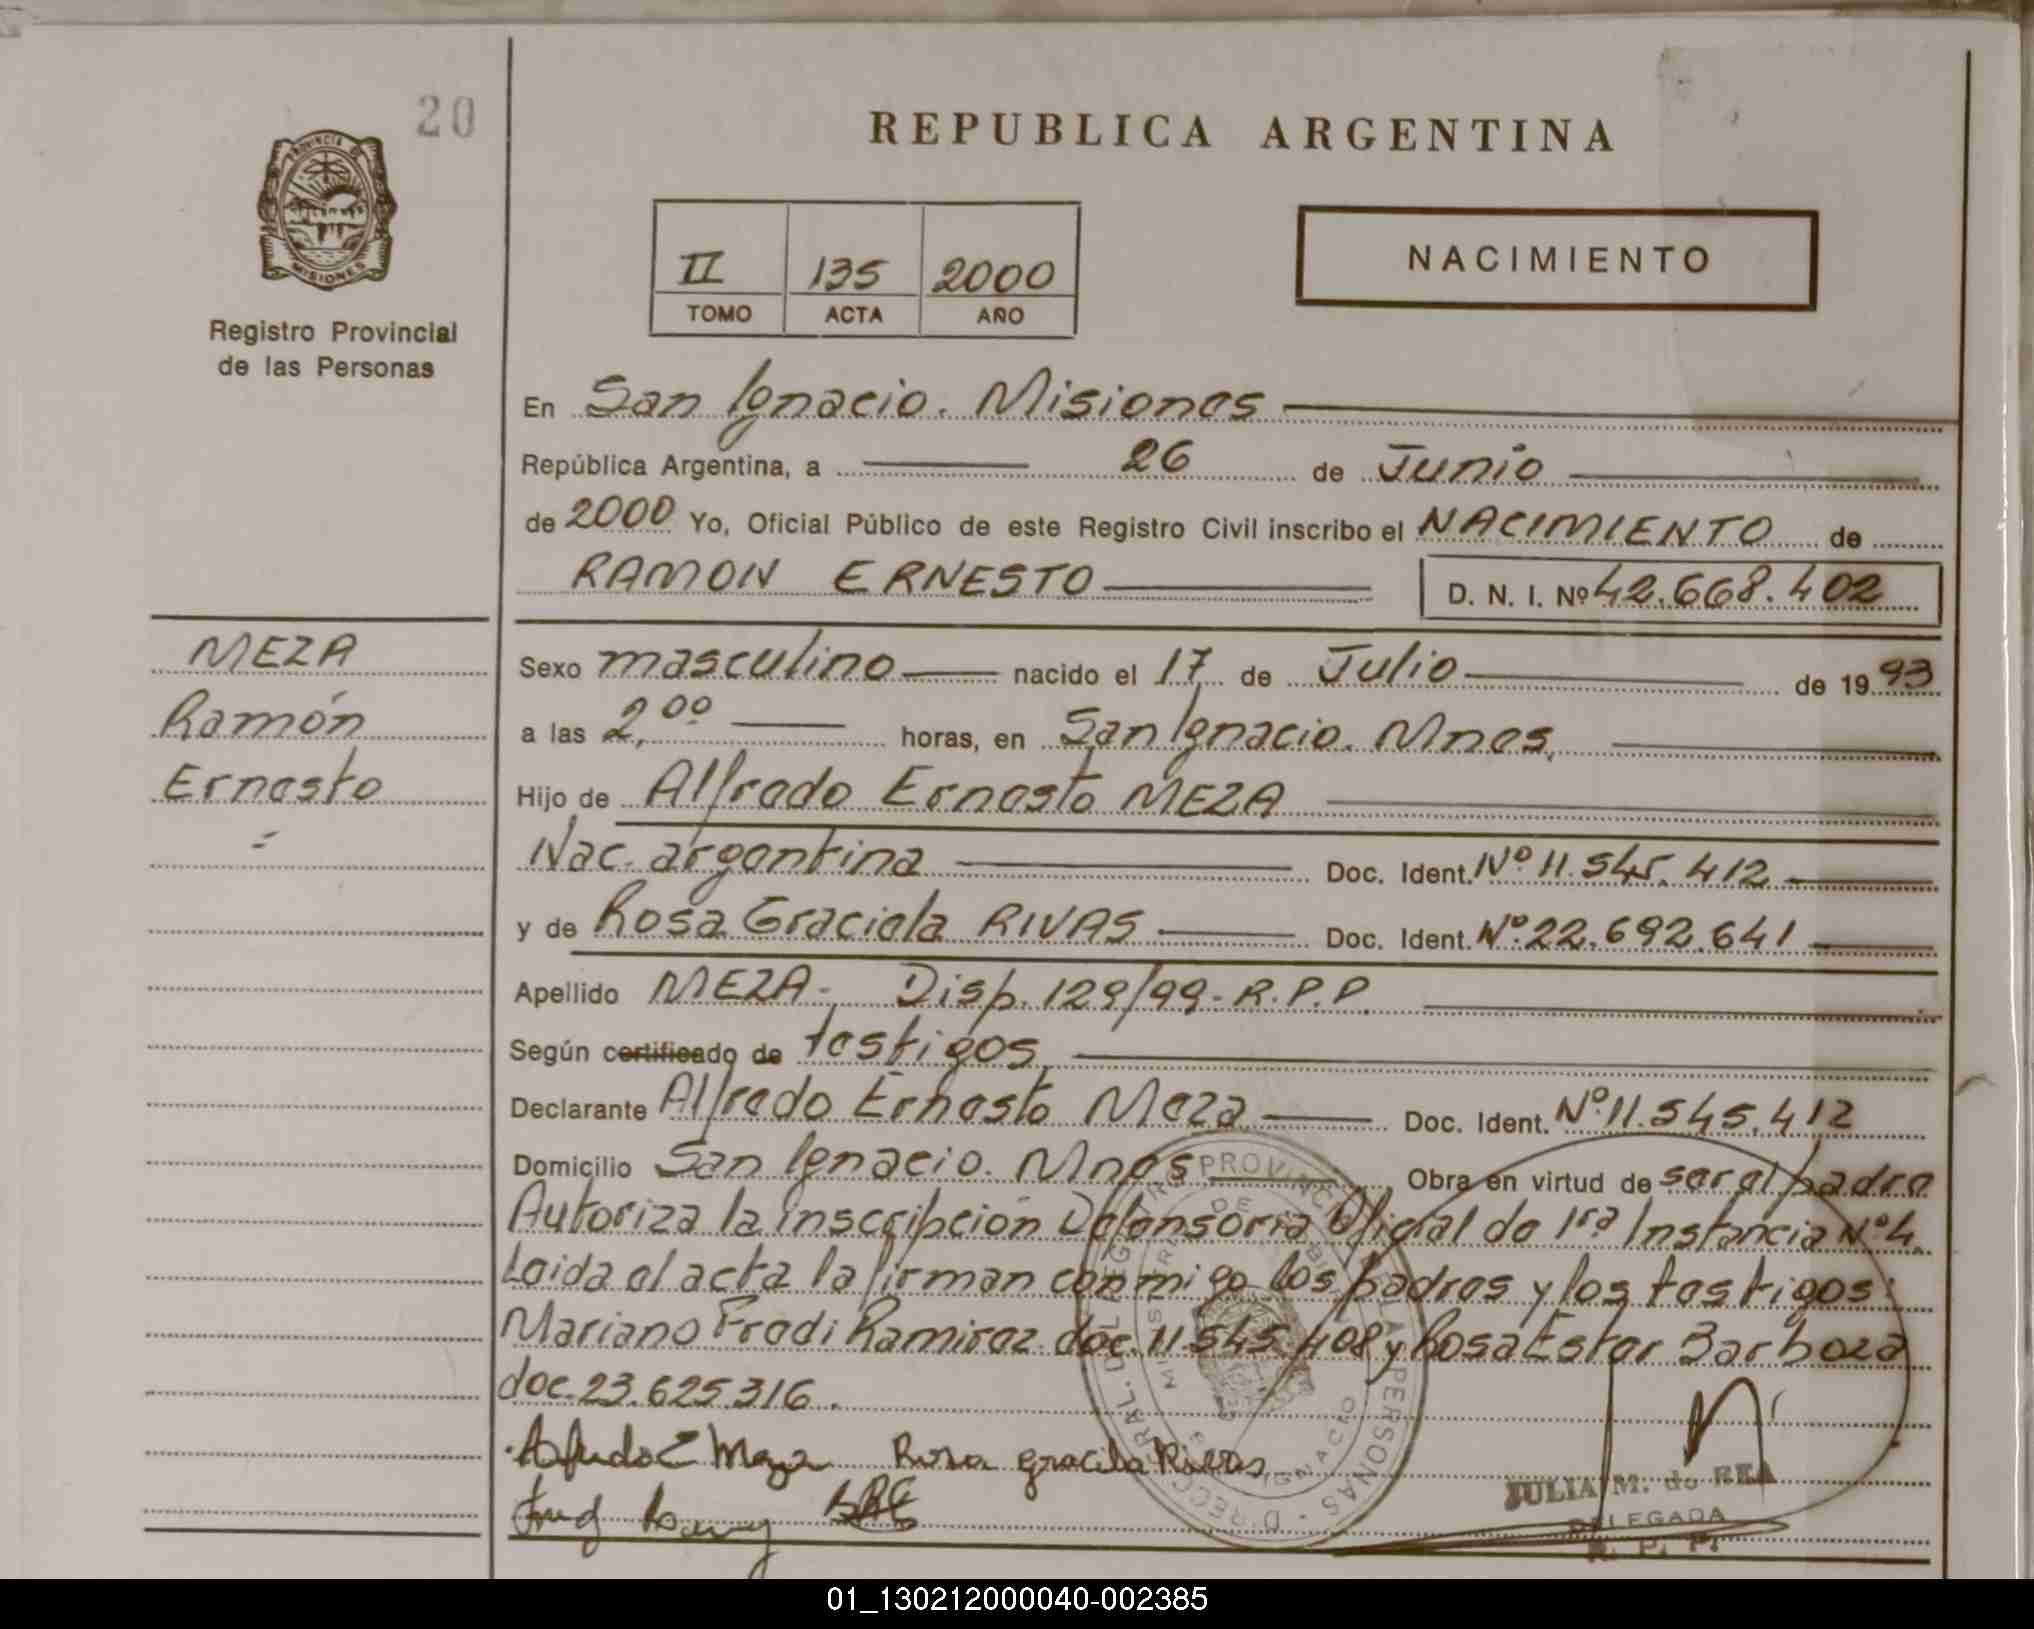 20
REPUBLICA ARGENTINA
PROVINCIA DE
MISIONES
Registro Provincial
de las Personas
II 135 2000
TOMO ACTA AÑO
NACIMIENTO
En San Ignacio. Misiones
República Argentina, a 26 de Junio
de 2000 Yo, Oficial Público de este Registro Civil inscribo el NACIMIENTO de
RAMON ERNESTO D. N. I. Nº 42.668.402
MEZA
Ramón
Ernesto
=
Sexo masculino nacido el 17 de Julio de 1993
a las 2,00 horas, en San Ignacio. Mnes.
Hijo de Alfredo Ernesto MEZA
Nac. argentina Doc. Ident. Nº 11.545.412
y de Rosa Graciela RIVAS Doc. Ident. Nº 22.692.641
Apellido MEZA. Disp. 129/99-R.P.P.
Según certificado de testigos
Declarante Alfredo Ernesto Meza Doc. Ident. Nº 11.545.412
Domicilio San Ignacio. Mnes Obra en virtud de ser el padre
Autoriza la inscripción Defensoría Oficial de 1ra Instancia Nº 4.
Leida el acta la firman conmigo los padres y los testigos:
Mariano Fredi Ramirez doc. 11.545.408 y Rosa Ester Barboza
doc. 23.625.316.
Alfredo E Meza Rosa Gracila Rivas
JULIA M. de REA
DELEGADA
R. P. P.
01_130212000040-002385